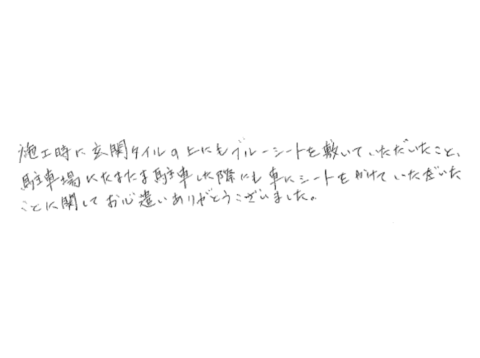 施工時に玄関タイルの上にもブルーシートを敷いていただいたこと、
駐車場にたまたま駐車した際にも車にシートをかけていただいた
ことに関してお心遣いありがとうございました。